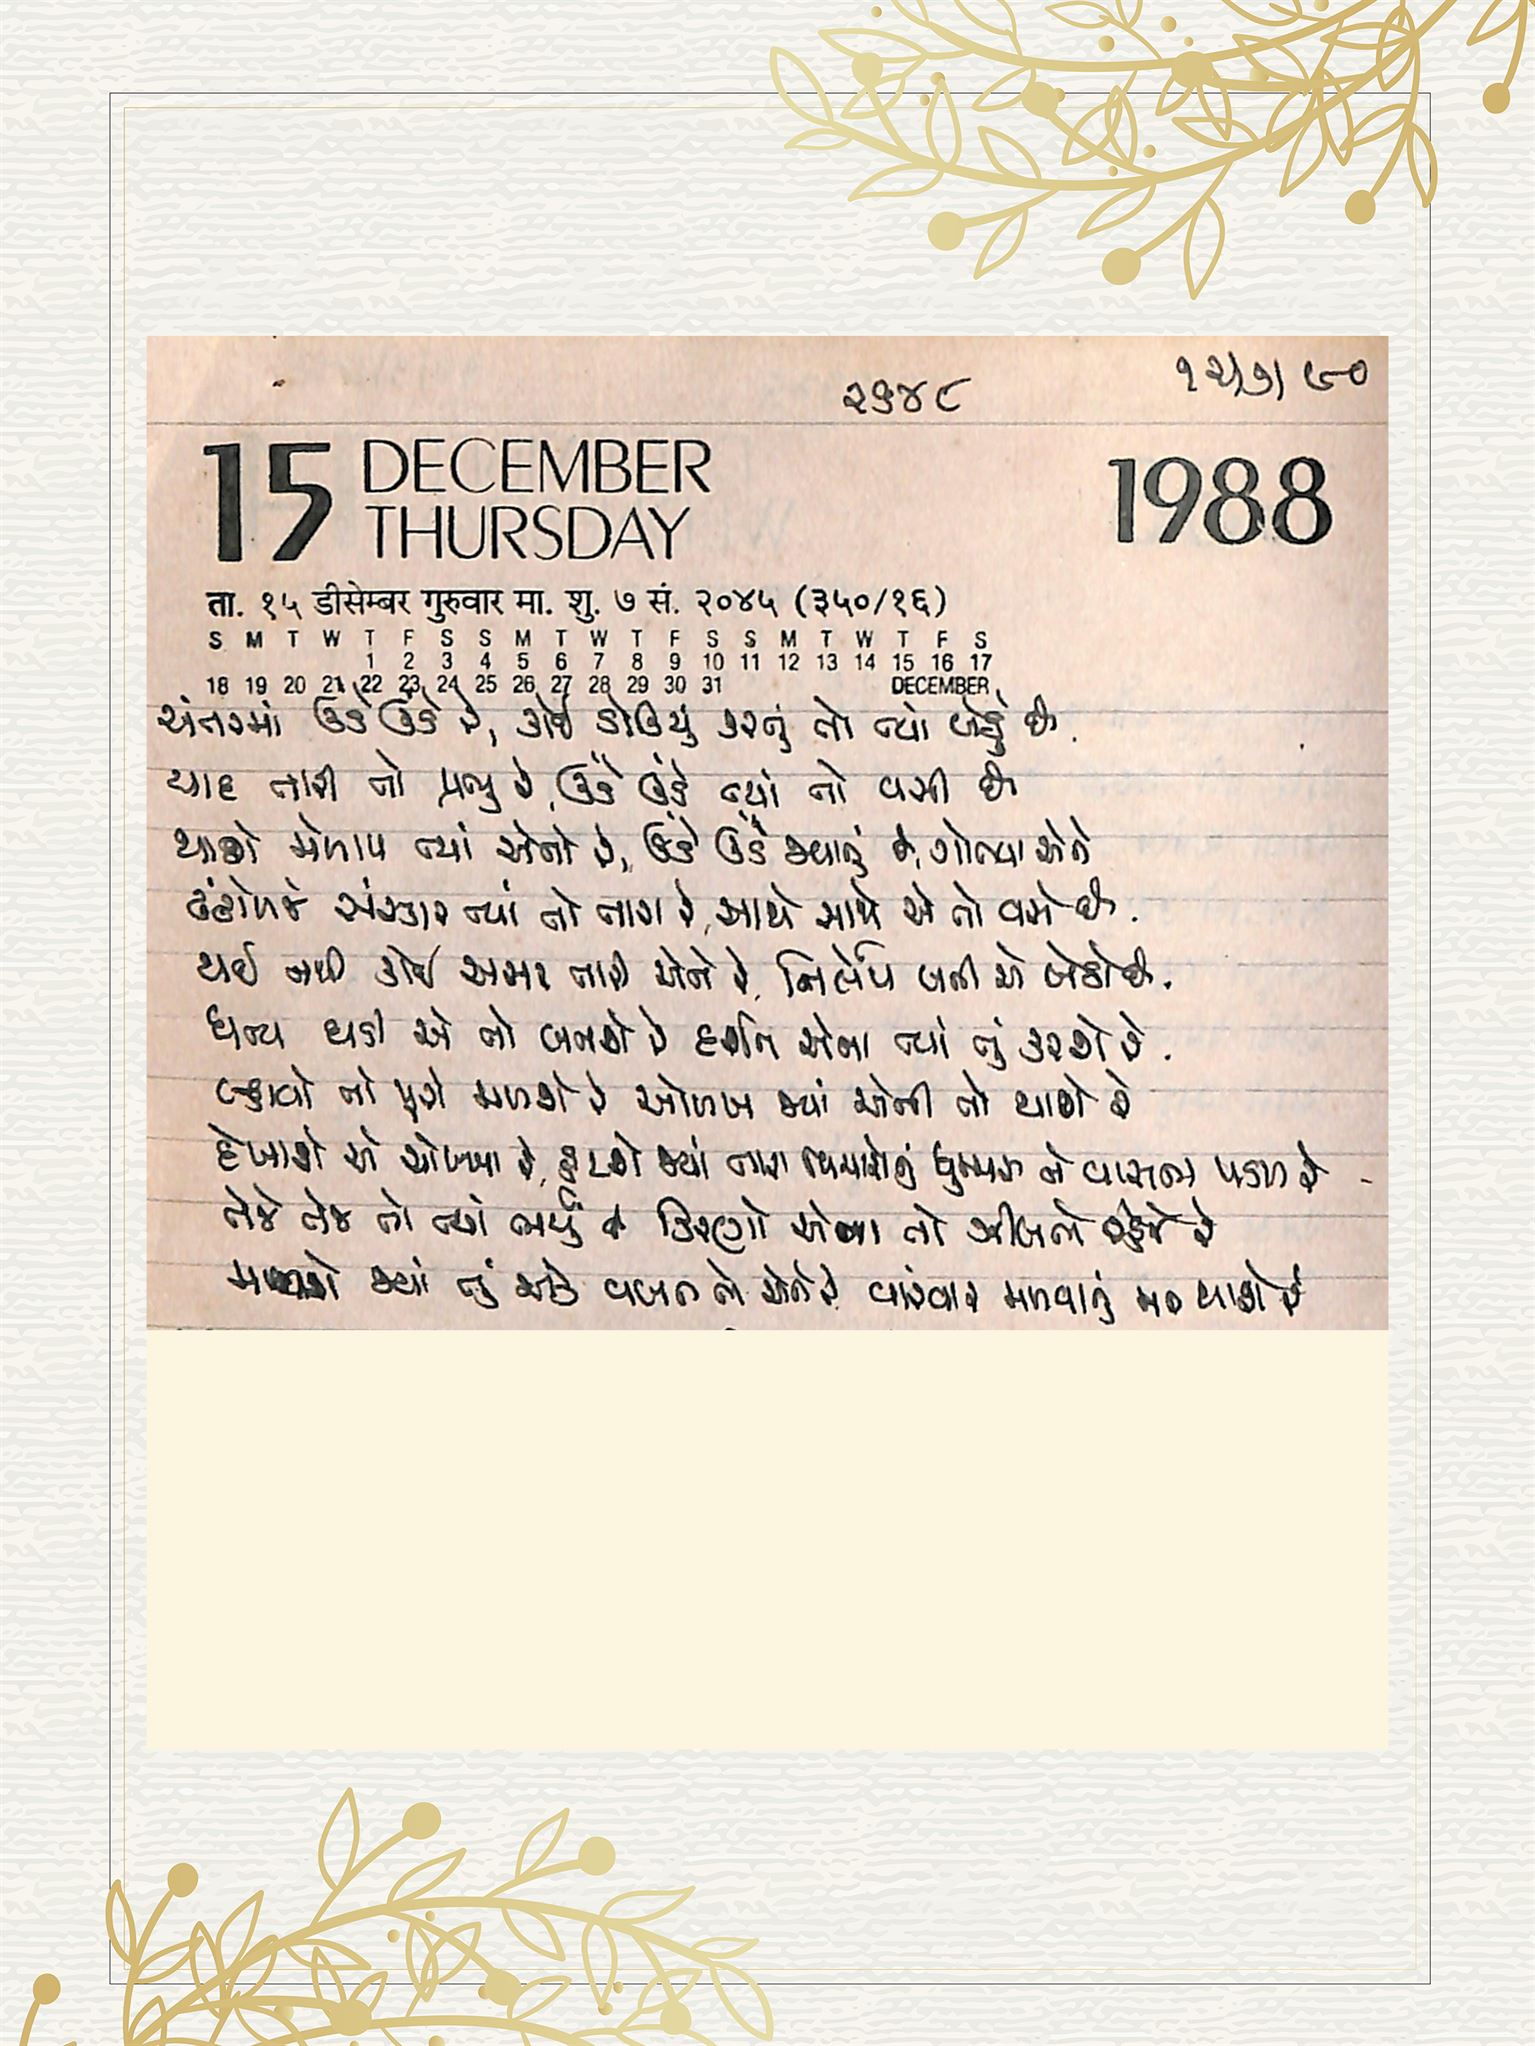 ૨૬૪૮
૧૨/૭/૯૦
15 DECEMBER
THURSDAY
1988
ता. १५ डीसेम्बर गुरुवार मा. शु. ७ सं. २०४५ (३५०/१६)
S M T W T F S S M T W T F S S M T W T F S
1 2 3 4 5 6 7 8 9 10 11 12 13 14 15 16 17
18 19 20 21 22 23 24 25 26 27 28 29 30 31 DECEMBER
અંતરમાં ઊંડે ઊંડે રે, કોઈ ડોકિયું કરતું તો ત્યાં બેઠું છે.
યાદ તારી તો પ્રભુ રે, ઊંડે ઊંડે ત્યાં તો વસી છે
થાશે મેળાપ ત્યાં એનો રે, ઊંડે ઊંડે ગોત્યા એને
ઢંઢોળજે સંસ્કાર ત્યાં તો તારા રે, સાથે સાથે એ તો વસે છે.
થઈ નથી કોઈ અસર તારી એને રે, નિર્લેપ બની એ બેઠો છે.
ધન્ય ઘડી એ તો બનશે રે દર્શન એના ત્યાં તું કરશે રે.
લ્હાવો તો પૂરો મળશે રે ઓળખ જ્યાં એની તો થાશે રે
દેખાશે એ ચોખ્ખા રે, હટશે જ્યાં તારા વિચારોનું ધુમ્મસ ને વાસના પડળ રે
તેજે તેજ તો ત્યાં ભર્યું કિરણો એના તો ઝીલતો રહેજે રે
મળશે જ્યાં તું એક વખત તો એને રે વારંવાર મળવાનું મન થાશે રે